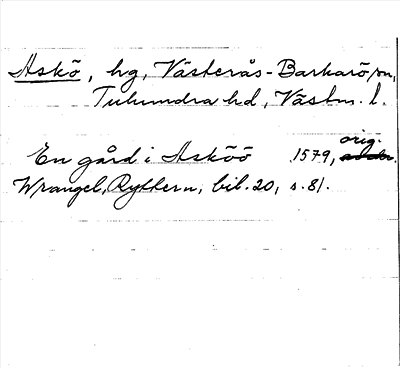 Askö, hg, Västerås-Barkarö sn,
Tuhundra hd, Västm. l.
En gård i Asköö 1579, orig.
Wrangel, Ryttern, bil. 20, s. 81.